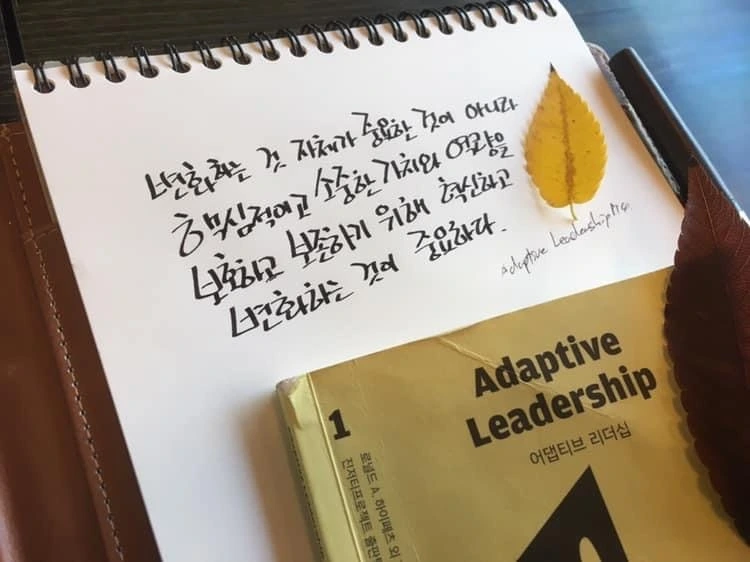 변화하는 것 자체가 중요한 것이 아니라
핵심적이고 소중한 가치와 역량을
보호하고 보존하기 위해 혁신하고
변화하는 것이 중요하다.
Adaptive Leadership
Adaptive
Leadership
어댑티브 리더십
1
로널드 A. 하이페츠 외
진저티프로젝트 출판